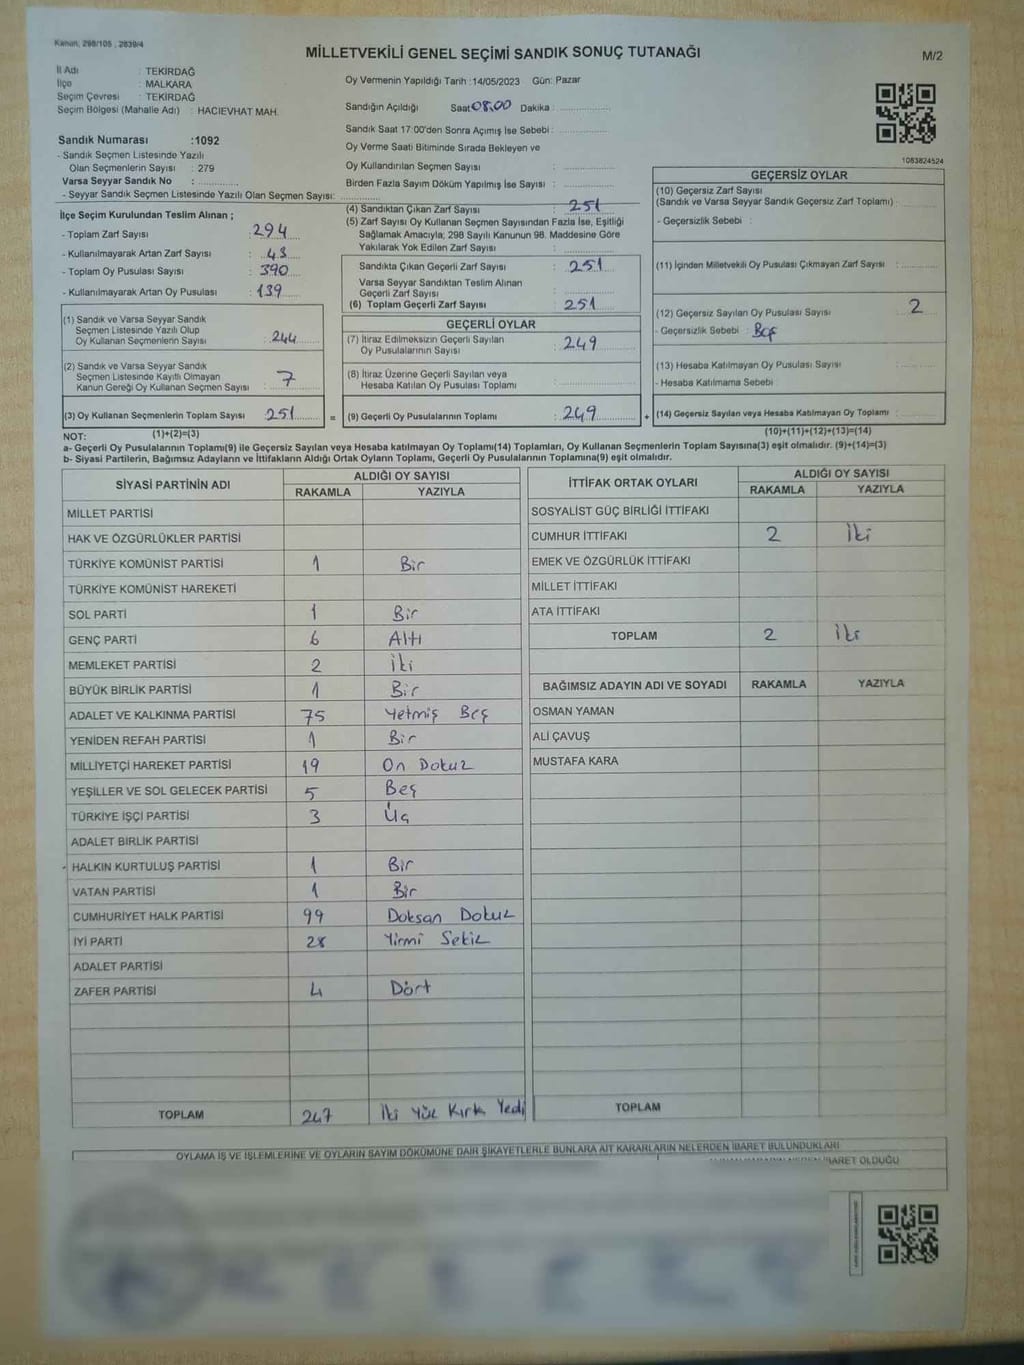 Kanun, 298/105 , 2839/4
MİLLETVEKİLİ GENEL SEÇİMİ SANDIK SONUÇ TUTANAĞI
M/2
İl Adı : TEKİRDAĞ
İlçe : MALKARA
Seçim Çevresi : TEKİRDAĞ
Seçim Bölgesi (Mahalle Adı) : HACIEVHAT MAH.
Sandık Numarası :1092
- Sandık Seçmen Listesinde Yazılı
Olan Seçmenlerin Sayısı : 279
Varsa Seyyar Sandık No :
- Seyyar Sandık Seçmen Listesinde Yazılı Olan Seçmen Sayısı:
Oy Vermenin Yapıldığı Tarih :14/05/2023 Gün: Pazar
Sandığın Açıldığı Saat 08.00 Dakika :
Sandık Saat 17:00'den Sonra Açımış İse Sebebi :
Oy Verme Saati Bitiminde Sırada Bekleyen ve
Oy Kullandırılan Seçmen Sayısı :
Birden Fazla Sayım Döküm Yapılmış İse Sayısı :
1083824524
İlçe Seçim Kurulundan Teslim Alınan ;
- Toplam Zarf Sayısı : 294
- Kullanılmayarak Artan Zarf Sayısı : 43
- Toplam Oy Pusulası Sayısı : 390
- Kullanılmayarak Artan Oy Pusulası : 139
(1) Sandık ve Varsa Seyyar Sandık
Seçmen Listesinde Yazılı Olup
Oy Kullanan Seçmenlerin Sayısı : 244
(2) Sandık ve Varsa Seyyar Sandık
Seçmen Listesinde Kayıtlı Olmayan
Kanun Gereği Oy Kullanan Seçmen Sayısı : 7
(3) Oy Kullanan Seçmenlerin Toplam Sayısı : 251
(1)+(2)=(3)
(4) Sandıktan Çıkan Zarf Sayısı : 251
(5) Zarf Sayısı Oy Kullanan Seçmen Sayısından Fazla İse, Eşitliği
Sağlamak Amacıyla; 298 Sayılı Kanunun 98. Maddesine Göre
Yakılarak Yok Edilen Zarf Sayısı :
Sandıkta Çıkan Geçerli Zarf Sayısı : 251
Varsa Seyyar Sandıktan Teslim Alınan
Geçerli Zarf Sayısı :
(6) Toplam Geçerli Zarf Sayısı : 251
GEÇERLİ OYLAR
(7) İtiraz Edilmeksizin Geçerli Sayılan
Oy Pusulalarının Sayısı : 249
(8) İtiraz Üzerine Geçerli Sayılan veya
Hesaba Katılan Oy Pusulası Toplamı :
= (9) Geçerli Oy Pusulalarının Toplamı : 249 +
GEÇERSİZ OYLAR
(10) Geçersiz Zarf Sayısı
(Sandık ve Varsa Seyyar Sandık Geçersiz Zarf Toplamı) :
- Geçersizlik Sebebi :
(11) İçinden Milletvekili Oy Pusulası Çıkmayan Zarf Sayısı :
(12) Geçersiz Sayılan Oy Pusulası Sayısı : 2
- Geçersizlik Sebebi : Boş
(13) Hesaba Katılmayan Oy Pusulası Sayısı :
- Hesaba Katılmama Sebebi :
(14) Geçersiz Sayılan veya Hesaba Katılmayan Oy Toplamı :
(10)+(11)+(12)+(13)=(14)
NOT:
a- Geçerli Oy Pusulalarının Toplamı(9) ile Geçersiz Sayılan veya Hesaba katılmayan Oy Toplamı(14) Toplamları, Oy Kullanan Seçmenlerin Toplam Sayısına(3) eşit olmalıdır. (9)+(14)=(3)
b- Siyasi Partilerin, Bağımsız Adayların ve İttifakların Aldığı Ortak Oyların Toplamı, Geçerli Oy Pusulalarının Toplamına(9) eşit olmalıdır.
SİYASİ PARTİNİN ADI ALDIĞI OY SAYISI
RAKAMLA YAZIYLA
MİLLET PARTİSİ
HAK VE ÖZGÜRLÜKLER PARTİSİ
TÜRKİYE KOMÜNİST PARTİSİ 1 Bir
TÜRKİYE KOMÜNİST HAREKETİ
SOL PARTİ 1 Bir
GENÇ PARTİ 6 Altı
MEMLEKET PARTİSİ 2 İki
BÜYÜK BİRLİK PARTİSİ 1 Bir
ADALET VE KALKINMA PARTİSİ 75 Yetmiş Beş
YENİDEN REFAH PARTİSİ 1 Bir
MİLLİYETÇİ HAREKET PARTİSİ 19 On Dokuz
YEŞİLLER VE SOL GELECEK PARTİSİ 5 Beş
TÜRKİYE İŞÇİ PARTİSİ 3 Üç
ADALET BİRLİK PARTİSİ
HALKIN KURTULUŞ PARTİSİ 1 Bir
VATAN PARTİSİ 1 Bir
CUMHURİYET HALK PARTİSİ 99 Doksan Dokuz
İYİ PARTİ 28 Yirmi Sekiz
ADALET PARTİSİ
ZAFER PARTİSİ 4 Dört
TOPLAM 247 İki Yüz Kırk Yedi
İTTİFAK ORTAK OYLARI ALDIĞI OY SAYISI
RAKAMLA YAZIYLA
SOSYALİST GÜÇ BİRLİĞİ İTTİFAKI
CUMHUR İTTİFAKI 2 İki
EMEK VE ÖZGÜRLÜK İTTİFAKI
MİLLET İTTİFAKI
ATA İTTİFAKI
TOPLAM 2 İki
BAĞIMSIZ ADAYIN ADI VE SOYADI RAKAMLA YAZIYLA
OSMAN YAMAN
ALİ ÇAVUŞ
MUSTAFA KARA
TOPLAM
OYLAMA İŞ VE İŞLEMLERİNE VE OYLARIN SAYIM DÖKÜMÜNE DAİR ŞİKAYETLERLE BUNLARA AİT KARARLARIN NELERDEN İBARET BULUNDUKLARI
İBARET OLDUĞU